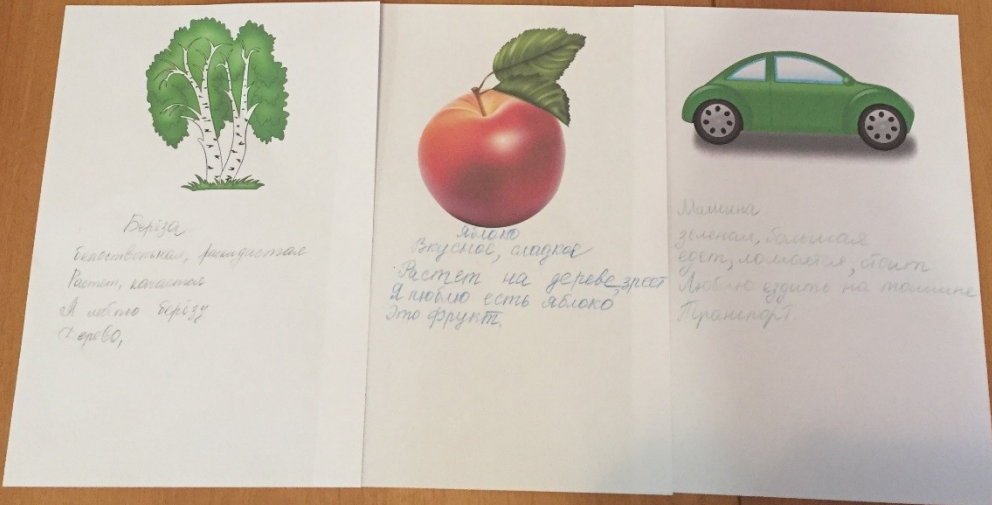 Берёза
белоствольная, раскидистая
Растет, качается
Я люблю берёзу
Дерево,
Яблоко
Вкусное, сладкое
Растет на дереве, зреет
Я люблю есть яблоко
Это фрукт.
Машина
зеленая, большая
едет, ломается, стоит
Люблю ездить на машине
Транспорт.